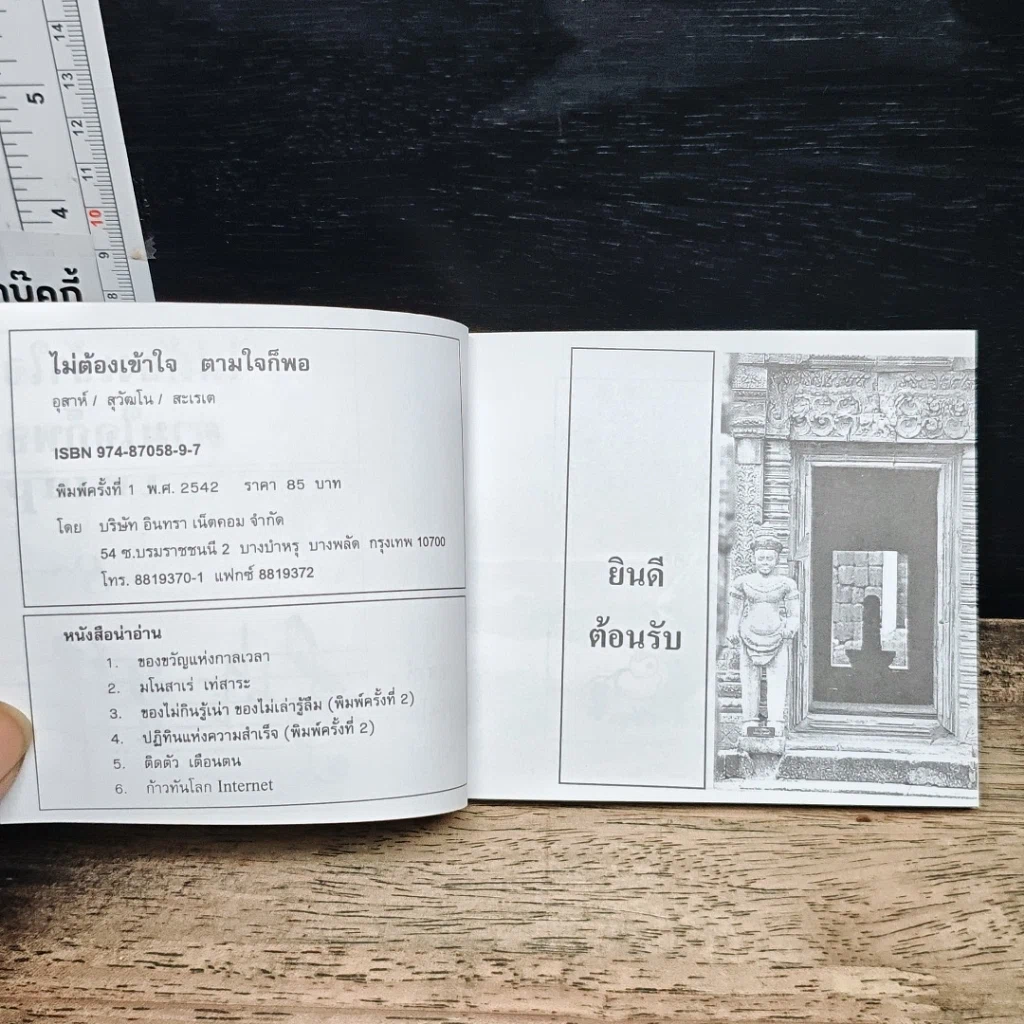 5
4
14
13
12
11
10
9
8
ไม่ต้องเข้าใจ ตามใจก็พอ
อุสาห์ / สุวัฒโน / สะเรเต
ISBN 974-87058-9-7
พิมพ์ครั้งที่ 1 พ.ศ. 2542 ราคา 85 บาท
โดย บริษัท อินทรา เน็ตคอม จำกัด
54 ซ.บรมราชชนนี 2 บางบำหรุ บางพลัด กรุงเทพ 10700
โทร. 8819370-1 แฟกซ์ 8819372
หนังสือน่าอ่าน
1. ของขวัญแห่งกาลเวลา
2. มโนสาเร่ เท่สาระ
3. ของไม่กินรู้เน่า ของไม่เล่ารู้ลืม (พิมพ์ครั้งที่ 2)
4. ปฏิทินแห่งความสำเร็จ (พิมพ์ครั้งที่ 2)
5. ติดตัว เตือนตน
6. ก้าวทันโลก Internet
ยินดี
ต้อนรับ